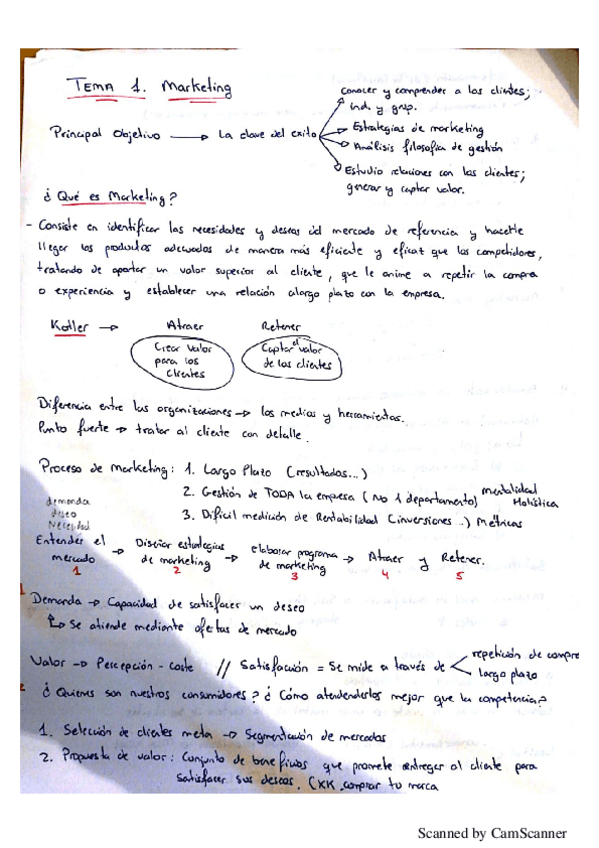 TEMA 1. Marketing
Principal Objetivo → La clave del exito
conocer y comprender a los clientes;
ind. y grup.
Estrategias de marketing
Análisis filosofia de gestión
Estudio relaciones con los clientes;
generar y captar valor.
¿Qué es Marketing?
- Consiste en identificar las necesidades y deseos del mercado de referencia y hacerle
llegar los productos adecuados de manera más eficiente y eficaz que los competidores,
tratando de aportar un valor superior al cliente, que le anime a repetir la compra
o experiencia y establecer una relación a largo plazo con la empresa.
Kotler → Atraer Retener
Crear valor
para los
clientes
Captar el valor
de los clientes
Diferencia entre las organizaciones → los medios y herramientas.
Punto fuerte → tratar al cliente con detalle.
Proceso de marketing: 1. Largo Plazo (resultados...)
2. Gestión de TODA la empresa (No 1 departamento) mentalidad Holística
3. Difícil medición de Rentabilidad (inversiones..) Métricas
demanda
deseo
Necesidad
Entender el mercado → Diseñar estrategias de marketing → Elaborar programa de marketing → Atraer y Retener.
1 2 3 4 5
1
Demanda → Capacidad de satisfacer un deseo
↳ Se atiende mediante ofertas de mercado
Valor → Percepción - coste // Satisfacción = Se mide a través de < repetición de compra
largo plazo
2 ¿Quienes son nuestros consumidores? ¿Cómo atenderlos mejor que la competencia?
1. Selección de clientes meta → Segmentación de mercados
2. Propuesta de valor: Conjunto de beneficios que promete entregar al cliente para
satisfacer sus deseos. comprar tu marca
Scanned by CamScanner